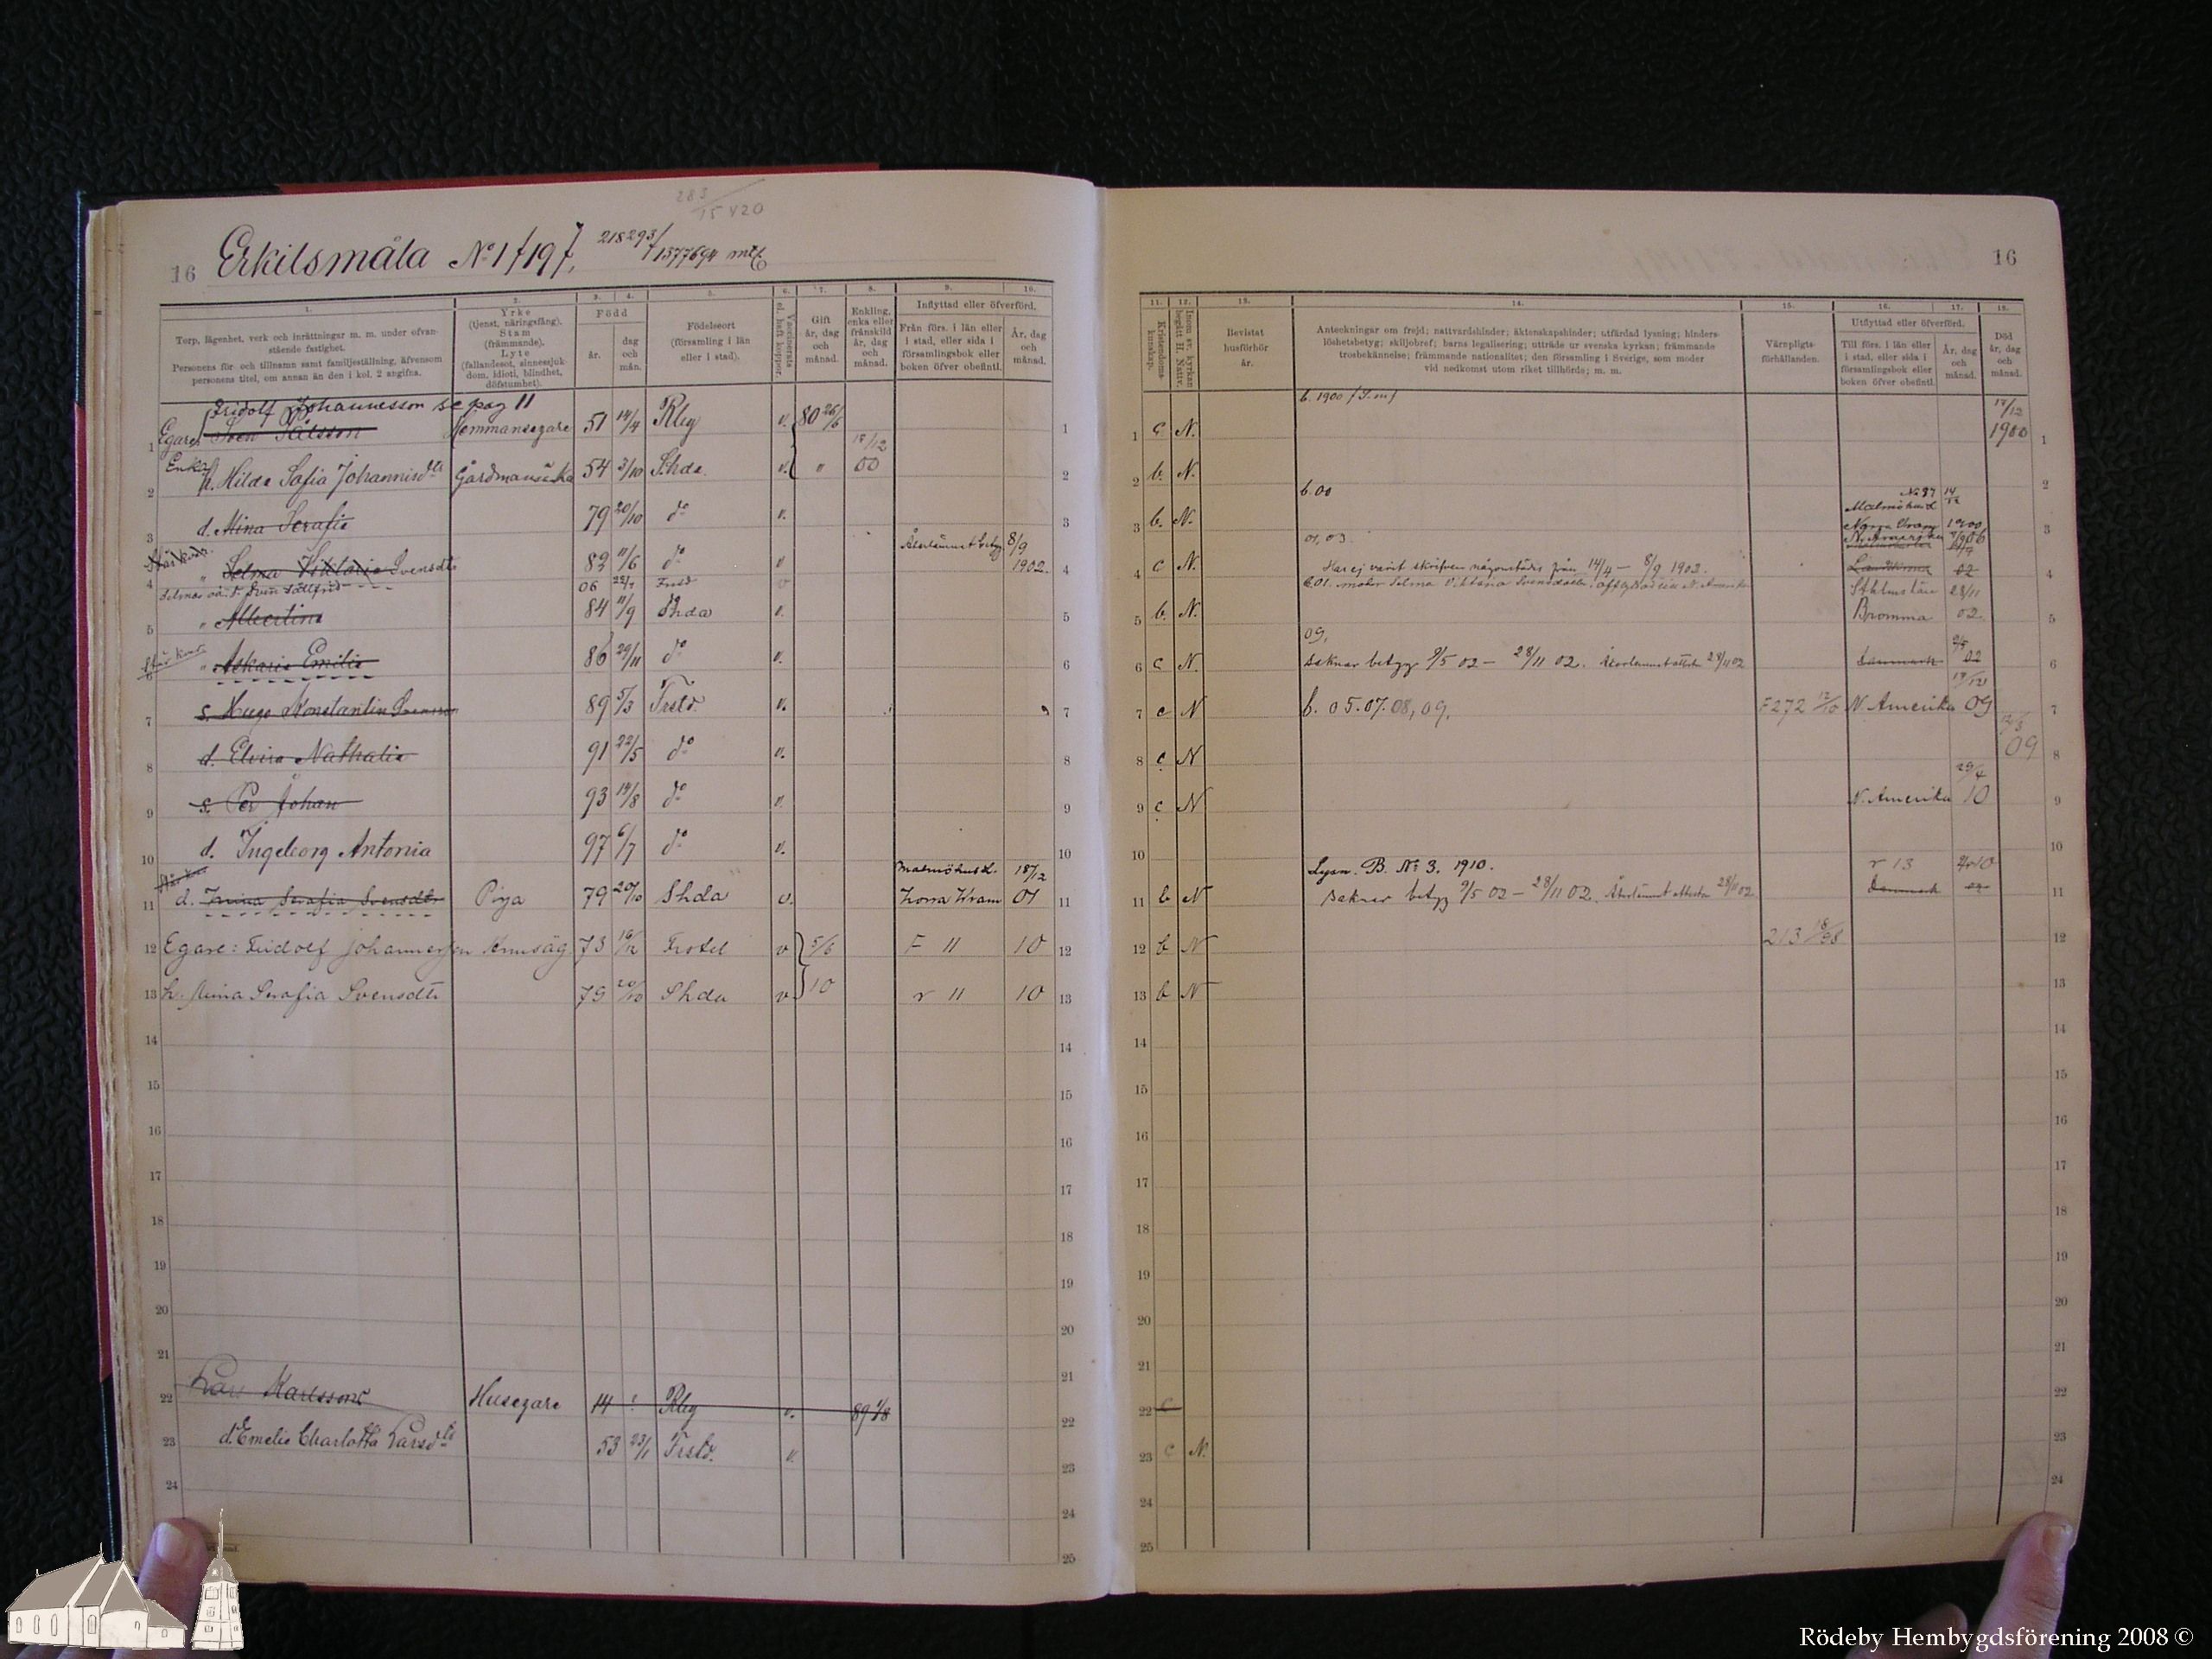 283/15 420
16 Erkilsmåla No 1 f 197, 218293/1377694 mtl
1. 2. 3. 4. 5. 6. 7. 8. 9. 10.
Torp, lägenhet, verk och inrättningar m. m. under ofvanstående fastighet.
Personens för och tillnamn samt familjeställning, äfvensom personens titel, om annan än den i kol. 2 angifna.
Yrke (tjenst, näringsfång). Stam (främmande). Lyte (fallandesot, sinnessjukdom, idioti, blindhet, döfstumhet).
Född
år.
dag och mån.
Födelseort (församling i län eller i stad).
Vaccinerats el. haft koppor.
Gift år, dag och månad.
Enkling, enka eller frånskild år, dag och månad.
Inflyttad eller öfverförd.
Från förs. i län eller i stad, eller sida i församlingsbok eller boken öfver obefintl.
År, dag och månad.
Fridolf Johannesson se pag 11
1 Egare Sven Pålsson Hemmansegare 51 14/4 Rbg v. 80 26/6 1
2 Enka h. Hilda Sofia Johannisdtr Gårdmanänka 54 3/10 S.hda v. " 17/12 00 2
3 d. Mina Serafia 79 20/10 do v. 3
4 " Selma Viktoria Svensdtr 82 11/6 do v Återlämnat betyg 8/9 1902. 4
Selmas oä. s. Sven 06 22/7 Frstd
5 " Albertina 84 11/9 Shda v. 5
6 " Askaria Emilia 86 29/11 do v. 6
7 s. Hugo Konstantin Svensson 89 5/3 Frstd. v. 7
8 d. Elvira Nathalia 91 22/5 do v. 8
9 s. Per Johan 93 19/8 do v. 9
10 d. Ingeborg Antonia 97 6/7 do v. 10
11 d. Mina Serafia Svensdtr Piga 79 20/10 Shda v. Malmöhus L. Norra Vram 18/12 01 11
12 Egare: Fridolf Johannesson 73 16/12 Frstd v 5/6 F 11 10 12
13 h. Mina Serafia Svensdtr 79 20/10 Shda v 10 r 11 10 13
14 14
15 15
16 16
17 17
18 18
19 19
20 20
21 21
22 Lars Karlsson Husegare 14 Rbg v. 89 1/8 22
23 d. Emelie Charlotta Larsdtr 53 23/1 Frstd. v. 23
24 24
25
16
11. 12. 13. 14. 15. 16. 17. 18.
Kristendomskunskap.
Inom sv. kyrkan begått H. Nattv.
Bevistat husförhör år.
Anteckningar om frejd; nattvardshinder; äktenskapshinder; utfärdad lysning; hinderslöshetsbetyg; skiljobref; barns legalisering; utträde ur svenska kyrkan; främmande trosbekännelse; främmande nationalitet; den församling i Sverige, som moder vid nedkomst utom riket tillhörde; m. m.
Värnpligtsförhållanden.
Utflyttad eller öfverförd.
Till förs. i län eller i stad, eller sida i församlingsbok eller boken öfver obefintl.
År, dag och månad.
Död år, dag och månad.
1 c N. b. 1900 17/12 1900 1
2 b. N. 2
3 b. N. b. 00 No 87 Malmöhus L Norra Vram 14/12 1900 3
4 c N. 01, 03. Har ej varit skrifven någonstädes från 14/4 – 8/9 1902. N. Amerika 4
b. 01. moder Selma Viktoria Svensdotter, afflyttad till N. Amerika
5 b. N. Sthlms län Bromma 28/11 02. 5
6 c N. 09. Saknar betyg 9/5 02 – 28/11 02. Återlämnat attesten 28/11 02 Danmark 9/5 02 6
7 c N b. 05. 07. 08, 09. F 272 12/10 N. Amerika 17/12 09 7
8 c N 12/3 09 8
9 c N N. Amerika 29/4 10 9
10 10
11 b N Lysn. B. No 3. 1910. Saknar betyg 9/5 02 – 28/11 02. Återlämnat attesten 28/11 02. r 13 10 Danmark 11
12 b N 213 18/98 12
13 b N 13
14 14
15 15
16 16
17 17
18 18
19 19
20 20
21 21
22 c 22
23 c N. 23
24 24
25
Rödeby Hembygdsförening 2008 ©